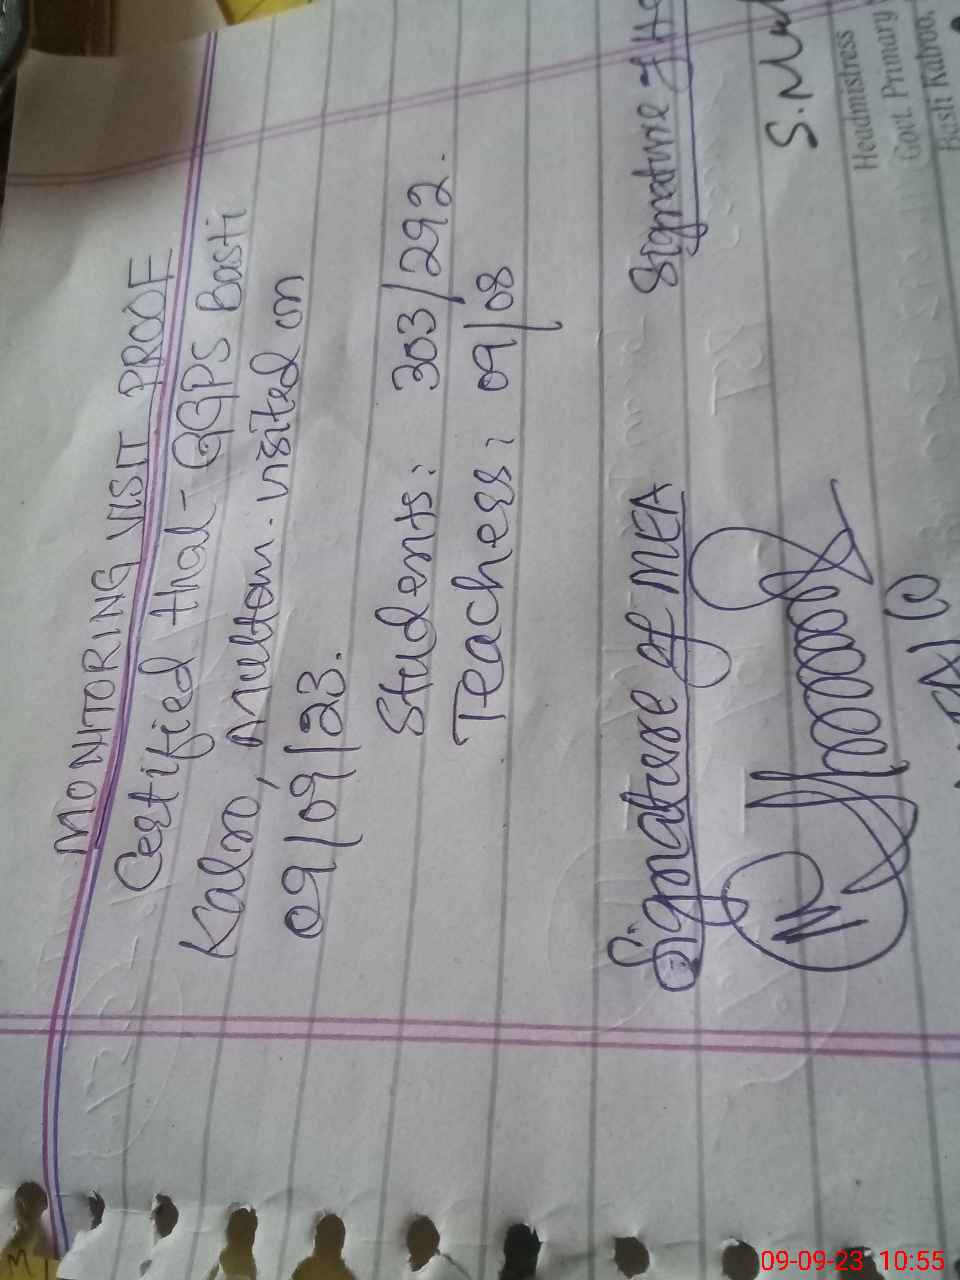 MONITORING VISIT PROOF
Certified that GGPS Basti
Kalro, Multan. visited on
09/09/23.
Students: 303/292.
Teachers: 09/08
Signature of MEA
Signature of
S.
Headmistress
Govt. Primary
Basti Kalroo,
09-09-23 10:55